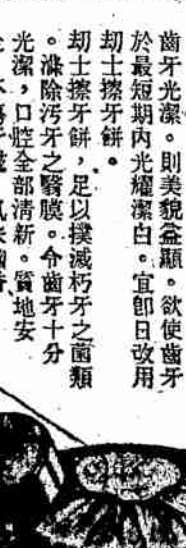 齒牙光潔。則美貌益顯。欲使齒牙
於最短期內光耀潔白。宜卽日改用
刧士擦牙餅。
刧士擦牙餅，足以撲滅朽牙之菌類
。滌除污牙之翳膜。令齒牙十分
光潔，口腔全部清新。質地安